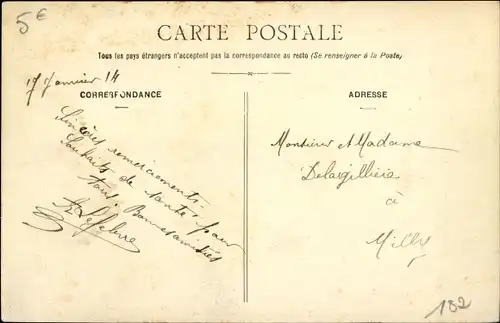 5€
CARTE POSTALE
Tous les pays étrangers n'acceptent pas la correspondance au recto (Se renseigner à la Poste)
17 Janvier 14
CORRESPONDANCE
Sincères remerciements.
Souhaits de santé pour
tous. Bonnes amitiés
Lefebvre
ADRESSE
Monsieur et Madame
Delargillière
à
Milly
182